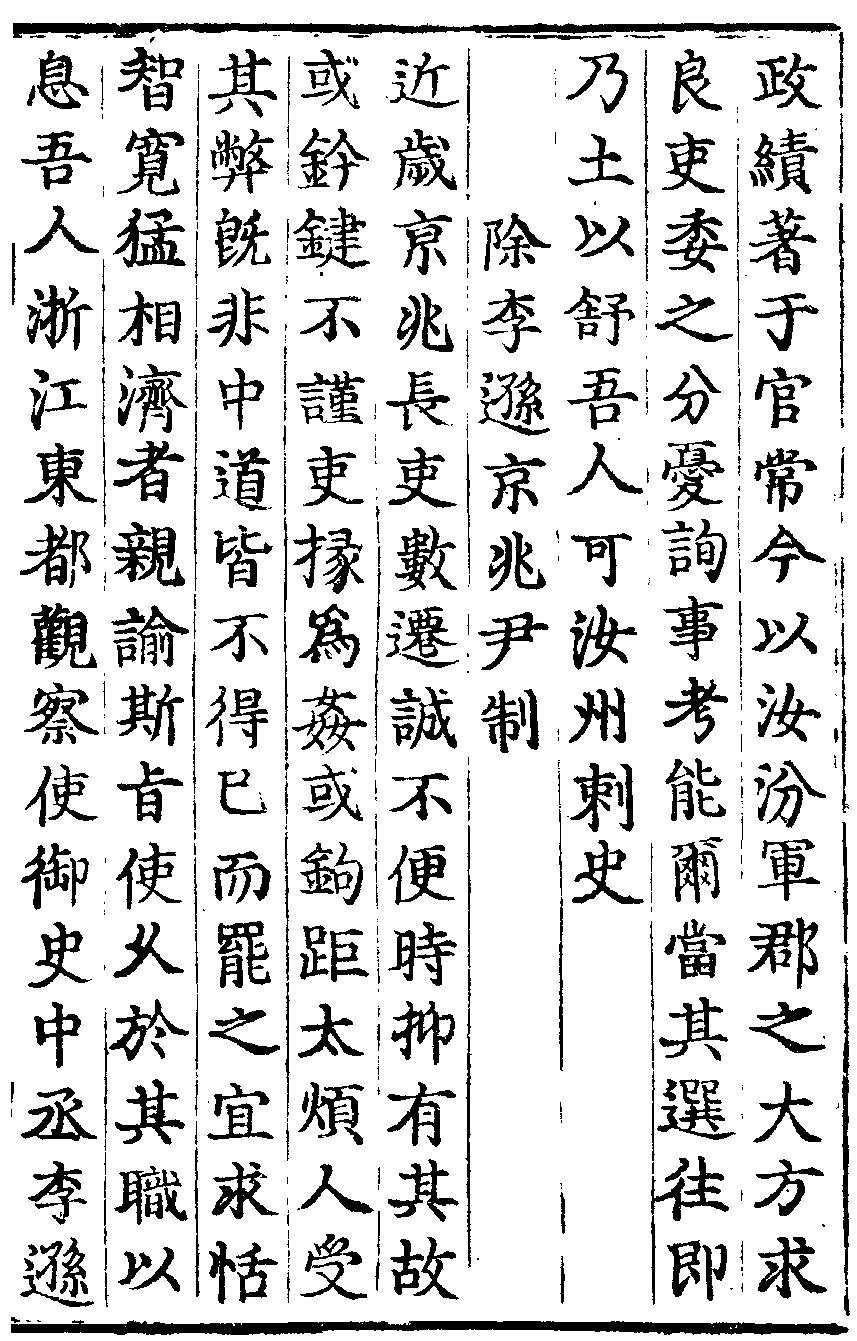 政績著于官常今以汝汾軍郡之大方求
良吏委之分憂詢事考能爾當其選往即
乃土以舒吾人可汝州刺史
除李遜京兆尹制
近歲京兆長吏數遷誠不便時抑有其故
或鈐鍵不謹吏掾爲姦或鉤距太煩人受
其弊旣非中道皆不得已而罷之宜求恬
智寛猛相濟者親諭斯旨使乆於其職以
息吾人浙江東都觀察使御史中丞李遜